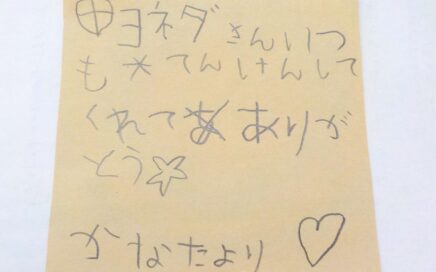 ヨネダさんいつ
も てんけんして
くれて ありが
とう☆
かなたより ♡